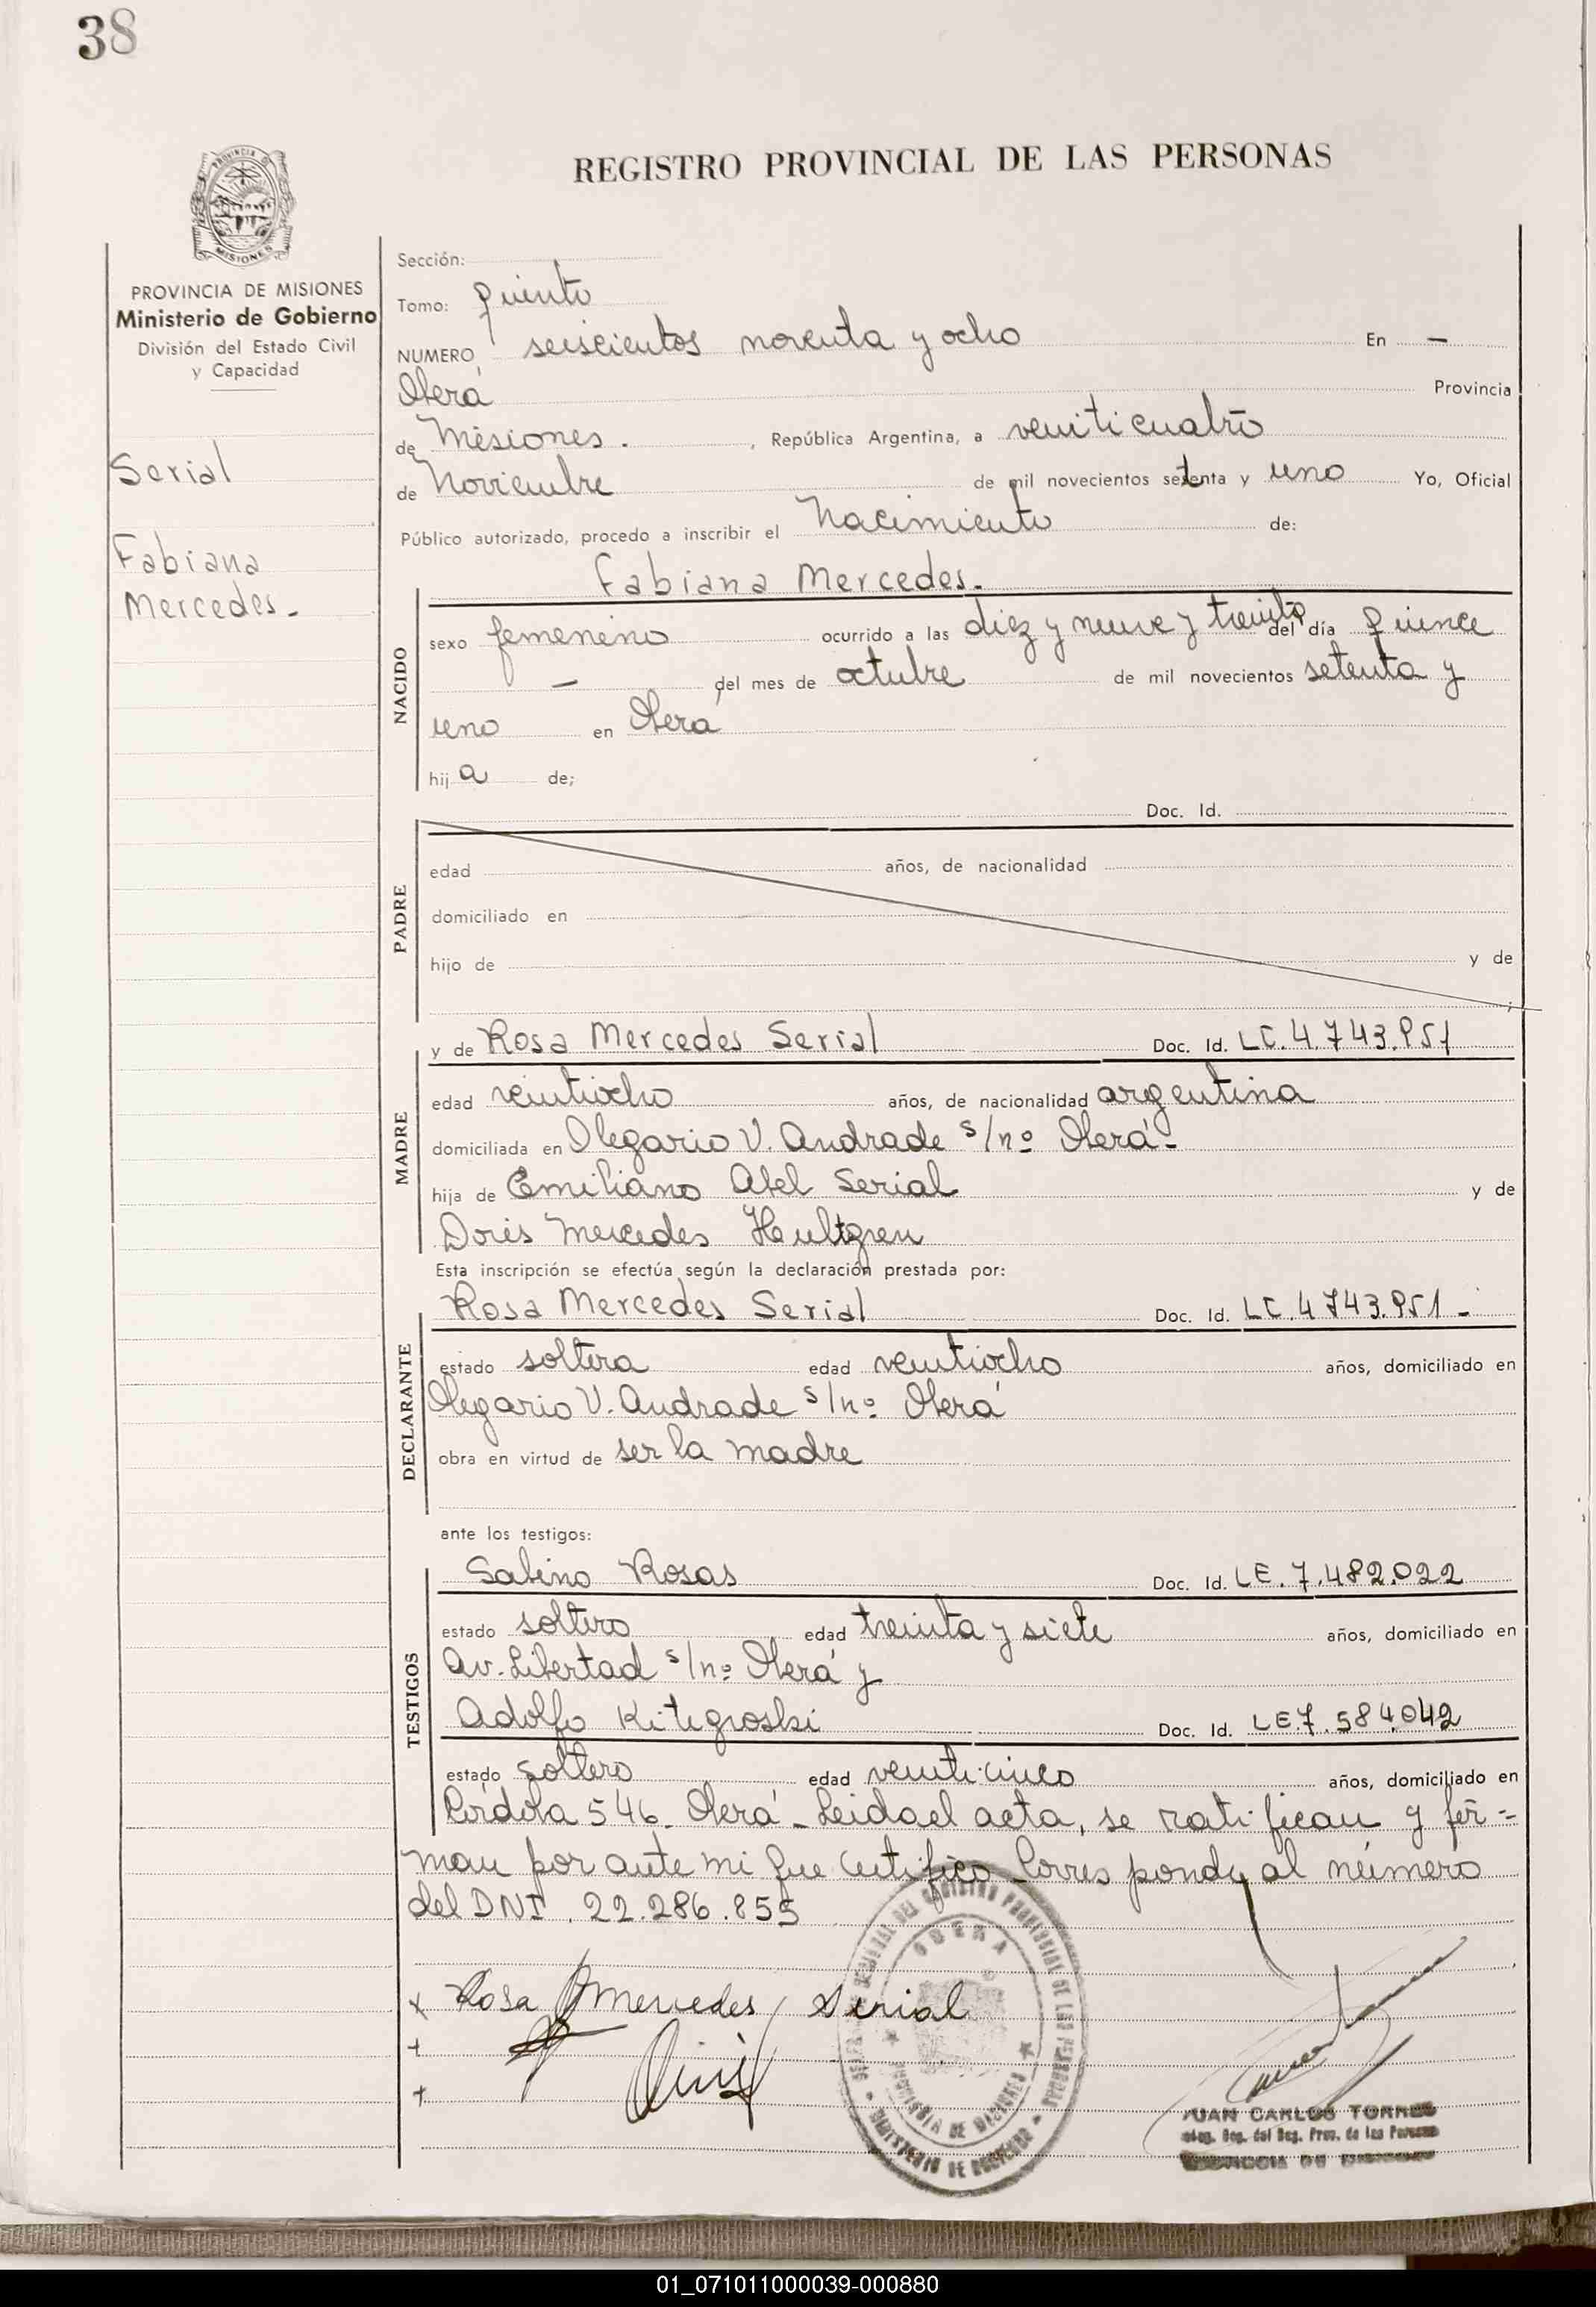 38
REGISTRO PROVINCIAL DE LAS PERSONAS
PROVINCIA DE
MISIONES
PROVINCIA DE MISIONES
Ministerio de Gobierno
División del Estado Civil
y Capacidad
Serial
Fabiana
Mercedes.-
Sección:
Tomo: quinto
NUMERO seiscientos noventa y ocho En —
Oberá Provincia
de Misiones. , República Argentina, a veinticuatro
de Noviembre de mil novecientos setenta y uno Yo, Oficial
Público autorizado, procedo a inscribir el Nacimiento de:
Fabiana Mercedes.-
NACIDO
sexo femenino ocurrido a las diez y nueve y treinta del día quince
— del mes de octubre de mil novecientos setenta y
uno en Oberá
hij a de;
Doc. Id.
PADRE
edad años, de nacionalidad
domiciliado en
hijo de y de
;
y de Rosa Mercedes Serial Doc. Id. LC. 4.743.951
MADRE
edad veintiocho años, de nacionalidad argentina
domiciliada en Olegario V. Andrade s/nº Oberá-
hija de Emiliano Abel Serial y de
Doris Mercedes Hultgren
Esta inscripción se efectúa según la declaración prestada por:
Rosa Mercedes Serial Doc. Id. LC. 4743.951 -
DECLARANTE
estado soltera edad veintiocho años, domiciliado en
Olegario V. Andrade s/nº Oberá
obra en virtud de ser la madre
ante los testigos:
Sabino Rosas Doc. Id. LE. 7.482.022
TESTIGOS
estado soltero edad treinta y siete años, domiciliado en
Av. Libertad s/nº Oberá y
Adolfo Kitegroski Doc. Id. LE 7.584.042
estado soltero edad veinticinco años, domiciliado en
Córdoba 546. Oberá - Leida el acta, se ratifican y fir=
man por ante mi que certifico. Corresponde al número
del DNI. 22.286.855
x Rosa Mercedes Serial
+
+
OBERA
PROVINCIA DE MISIONES
MINISTERIO DE GOBIERNO
JUAN CARLOS TORRES
del Reg. Prov. de las Personas
01_071011000039-000880